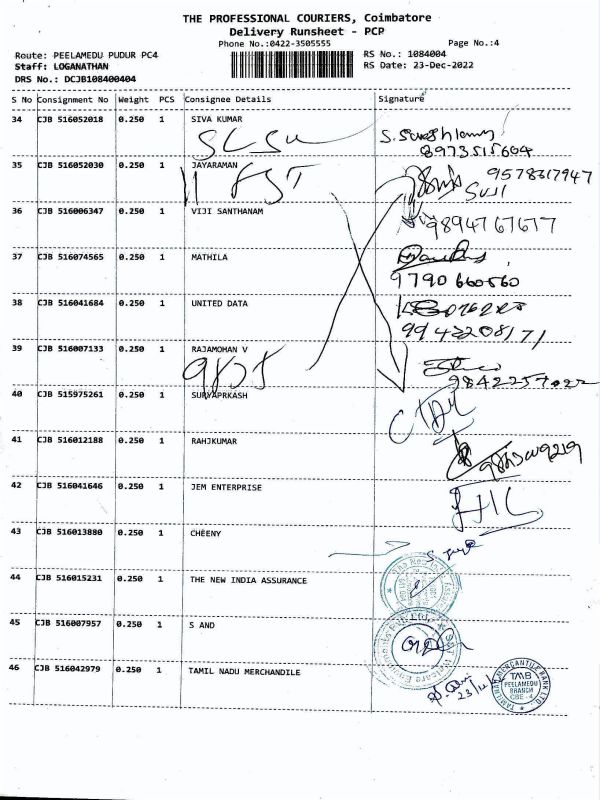 THE PROFESSIONAL COURIERS, Coimbatore
Delivery Runsheet - PCP
Phone No.:0422-3505555
Page No.:4
Route: PEELAMEDU PUDUR PC4
RS No.: 1084004
Staff: LOGANATHAN
RS Date: 23-Dec-2022
DRS No.: DCJB108400404
S No Consignment No Weight PCS Consignee Details Signature
34 CJB 516052018 0.250 1 SIVA KUMAR
8973515604
35 CJB 516052030 0.250 1 JAYARAMAN
9578317947
SUJI
36 CJB 516006347 0.250 1 VIJI SANTHANAM
9894767677
37 CJB 516074565 0.250 1 MATHILA
9790660560
38 CJB 516041684 0.250 1 UNITED DATA
9943208171
39 CJB 516007133 0.250 1 RAJAMOHAN V
40 CJB 515975261 0.250 1 SURYAPRKASH
41 CJB 516012188 0.250 1 RAHJKUMAR
42 CJB 516041646 0.250 1 JEM ENTERPRISE
43 CJB 516013880 0.250 1 CHEENY
44 CJB 516015231 0.250 1 THE NEW INDIA ASSURANCE
45 CJB 516007957 0.250 1 S AND
46 CJB 516042979 0.250 1 TAMIL NADU MERCHANDILE
TAMILNAD MERCANTILE BANK LTD.
TMB
PEELAMEDU
BRANCH
CBE - 4